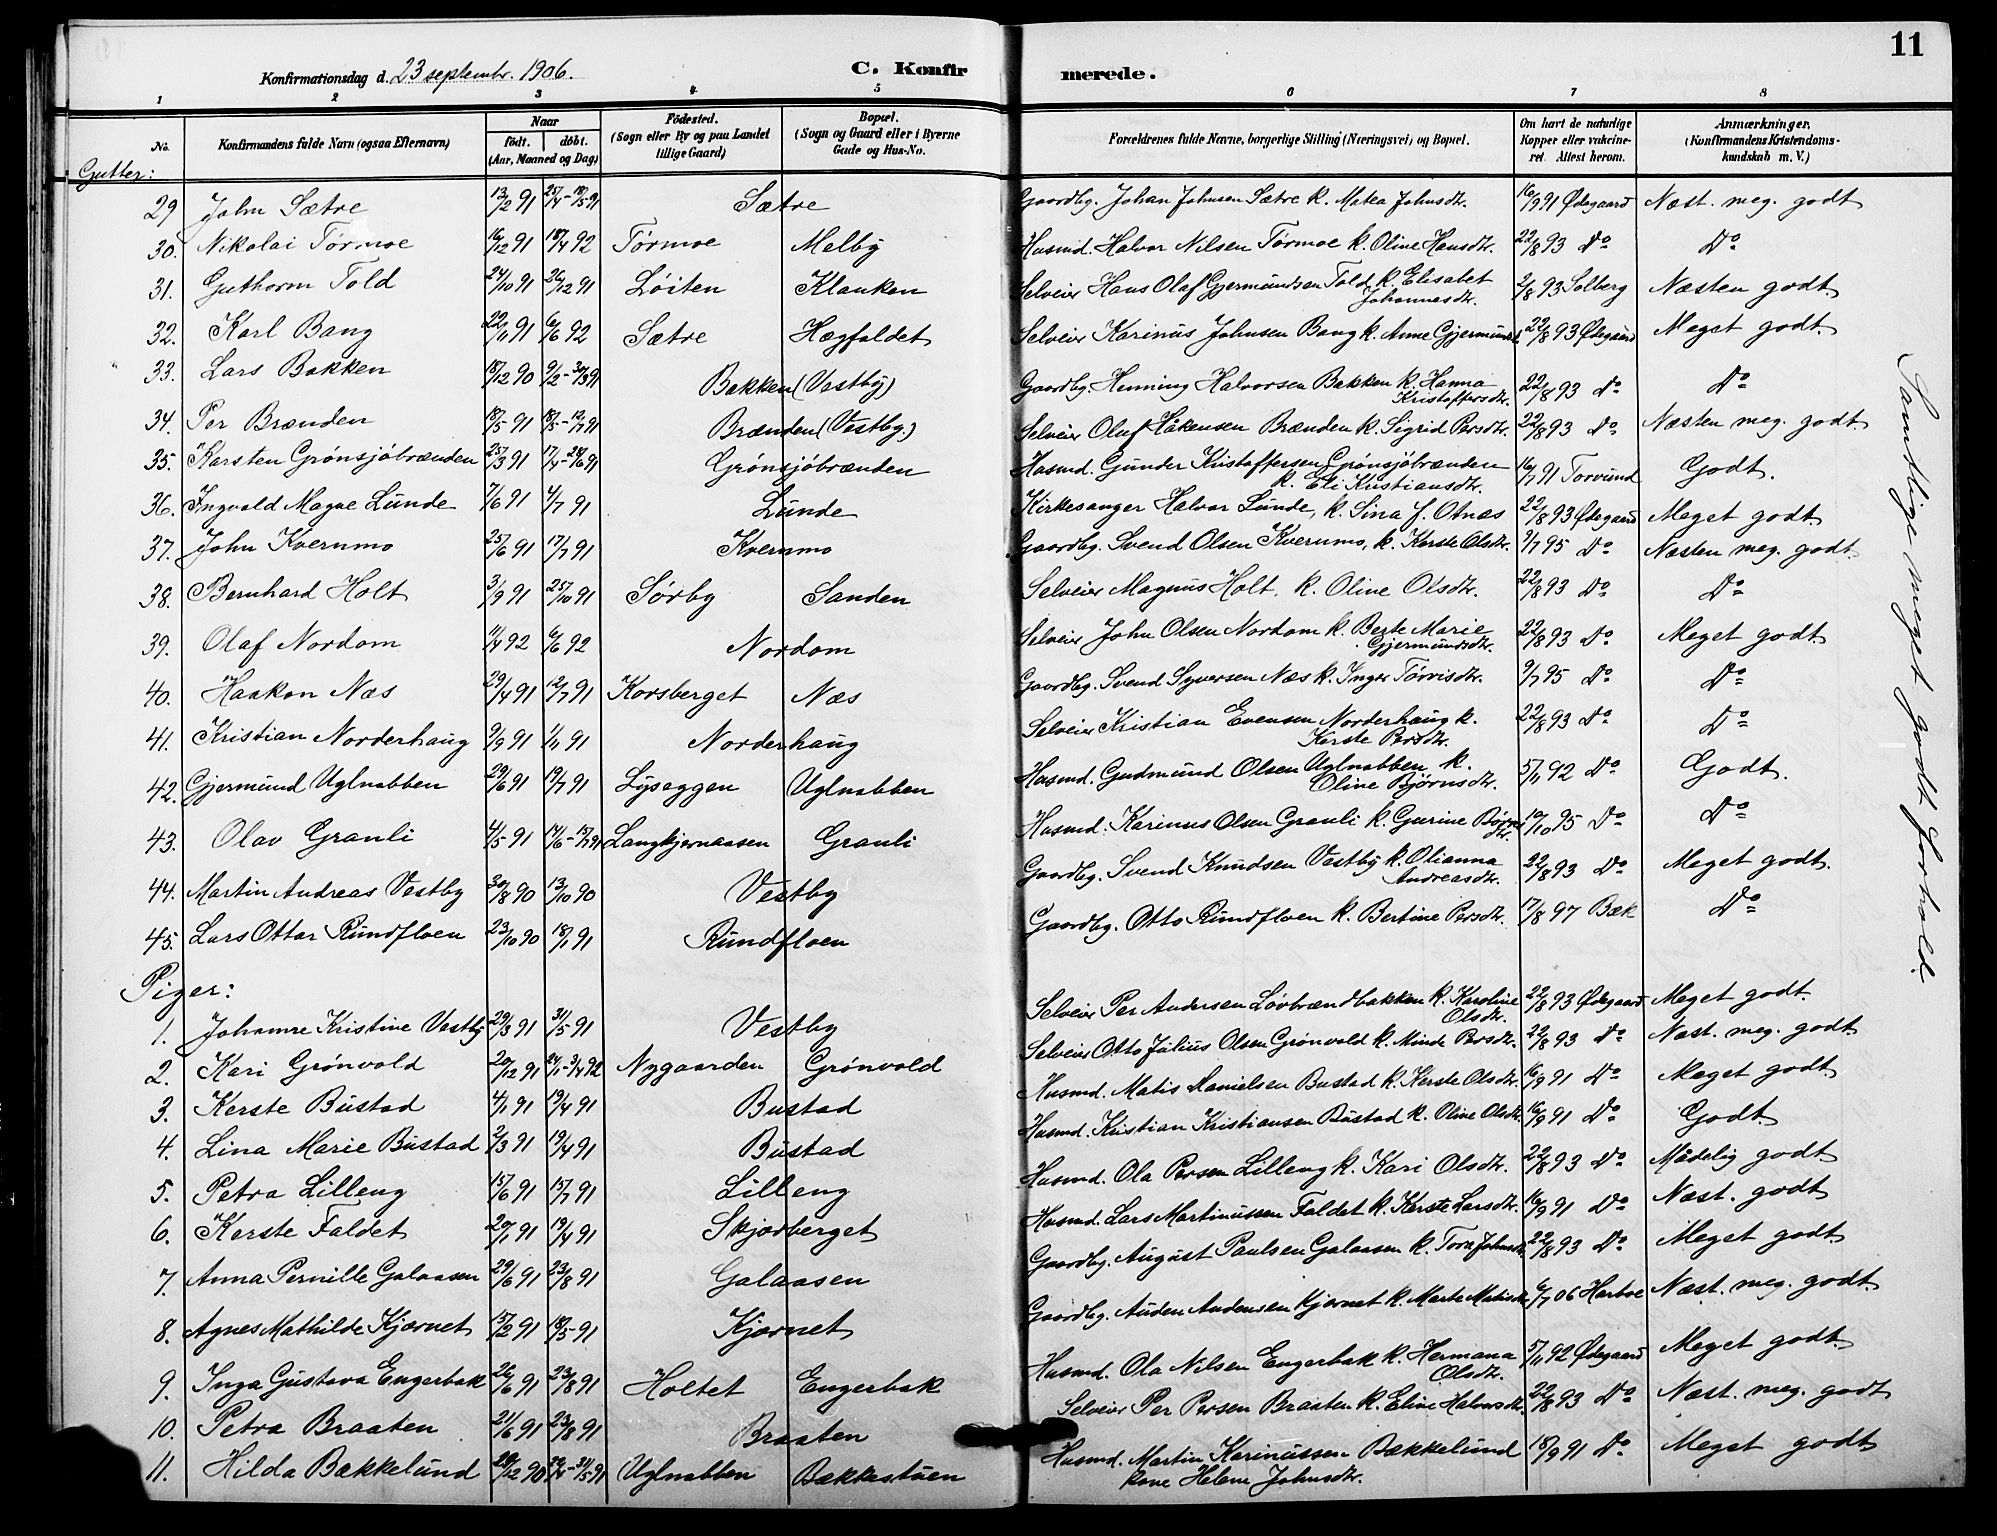 11
Konfirmationsdag d. 23 septembr. 1906.
C. Konfirmerede.
1 2 3 4 5 6 7 8
No. Konfirmandens fulde Navn (ogsaa Efternavn) Naar født. døbt. (Aar, Maaned og Dag) Fødested. (Sogn eller By og paa Landet tillige Gaard) Bopæl. (Sogn og Gaard eller i Byerne Gade og Hus-No. Forældrenes fulde Navne, borgerlige Stilling (Næringsvei) og Bopæl. Om havt de naturlige Kopper eller vakcineret. Attest herom. Anmærkninger. (Konfirmandens Kristendomskundskab m. V.)
Gutter:
29 John Sætre 13/2 91 25/4-18/5 91 Sætre Gaardbg. Johan Johnsen Sætre k. Matea Johnsdtr. 16/9 91 Ødegaard Næst. meg. godt
30. Nikolai Tørmoe 16/12 91 18/4 92 Tørmoe Melby Husmd. Halvor Nilsen Tørmoe k. Oline Hansdtr. 22/8 93 Do Do
31. Guthorm Told 24/10 91 26/12 91 Løiten Klanken Selveier Hans Olaf Gjermundsen Told k. Elisabet Johannesdtr. 2/8 93 Solberg Næsten godt.
32. Karl Bang 22/11 91 6/6 92 Sætre Hægfaldet Selveier Karinus Johnsen Bang k. Anne Gjermundsd. 22/8 93 Ødegaard Meget godt.
33. Lars Bakken 18/12 90 9/2-30/3 91 Bakken (Vestby) Gaardbg. Henning Halvorsen Bakken k. Hanna Kristoffersdtr. 22/8 93 Do Do
34. Per Brænden 18/5 91 18/5-12/7 91 Brænden (Vestby.) Selveier Oluf Håkensen Brænden k. Sigrid Persdtr. 22/8 93 Do Næsten meg. godt.
35. Karsten Grønsjöbrænden 25/3 91 17/4-28/6 91 Grønsjöbrænden Husmd. Gunder Kristoffersen Grønsjöbrænden k. Eli Kristiansdtr. 16/7 91 Torvund Godt.
36. Ingvald Magne Lunde 7/6 91 4/7 91 Lunde Kirkesanger Halvor Lunde, k. Sina f. Otnæs 22/8 93 Ødegaard Meget godt
37. John Kvernmo 25/6 91 17/7 91 Kvernmo Gaardbg. Svend Olsen Kvernmo, k. Kerste Olsdtr. 2/7 95 Do Næsten meg. godt.
38. Bernhard Holt 3/9 91 25/10 91 Sörby Sanden Selveier Magnus Holt, k. Oline Olsdtr. 22/8 93 Do Do
39. Olaf Nordom 11/4 92 6/6 92 Nordom Selveier John Olsen Nordom k. Berte Marie Gjermundsdtr. 22/8 93 Do Meget godt.
40. Haakon Næs 29/4 91 12/7 91 Korsberget Næs Gaardbg. Svend Syversen Næs k. Inger Tørrisdtr. 9/7 95 Do Do
41. Kristian Norderhaug 9/9 91 1/11 91 Norderhaug Selveier Kristian Evensen Norderhaug k. Kerste Persdtr. 22/8 93 Do Do
42. Gjermund Uglnabben 29/6 91 19/7 91 Lyseggen Uglnabben Husmd. Gudmund Olsen Uglnabben k. Oline Bjørnsdtr. 5/11 92 Do Godt.
43. Olav Granli 4/5 91 14/6-15/7 91 Langkjernaasen Granli Husmd. Karinus Olsen Granli k. Gurine Börresdtr. 10/10 95 Do Do
44. Martin Andreas Vestby 30/8 90 13/10 90 Vestby Gaardbg. Svend Knudsen Vestby k. Olianna Andreasdtr. 22/8 93 Do Meget godt.
45. Lars Ottar Rundfloen 23/10 90 18/1 91 Rundfloen Gaardbg. Otto Rundfloen k. Bertine Persdtr. 17/8 97 Bæk Do
Piger:
1. Johanne Kristine Vestby 29/3 91 31/5 91 Vestby Selveier Per Andersen Lövbrændbakken k. Karoline Olsdtr. 22/8 93 Ødegaard Meget godt.
2. Kari Grönvold 20/12 91 24/1-3/4 92 Nygaarden Grönvold Selveier Otto Julius Olsen Grønvold k. Minda Persdtr. 22/8 93 Do Næst. meg. godt
3. Kerste Bustad 4/1 91 19/4 91 Bustad Husmd. Matis Danielsen Bustad k. Kerste Olsdtr. 16/9 91 Do Meget godt
4. Lina Marie Bustad 2/3 91 19/4 91 Bustad Husmd. Kristian Kristiansen Bustad k. Oline Olsdtr. 16/9 91 Do Godt.
5. Petra Lilleng 15/6 91 15/7 91 Lilleng Husmd. Ola Persen Lilleng k. Kari Olsdtr. 22/8 93 Do Mådelig godt.
6. Kerste Faldet 20/1 91 19/4 91 Skjærberget Husmd. Lars Martinussen Faldet k. Kerste Larsdtr. 16/9 91 Do Næst. godt
7. Anna Pernille Galaasen 29/6 91 23/8 91 Galaasen Gaardbg. August Paulsen Galaasen k. Tora Johnsdr. 22/8 93 Do Meget godt.
8. Agnes Mathilde Kjærnet 15/2 91 18/5 91 Kjærnet Gaardbg. Auden Audensen Kjernet k. Marte Matisdr. 6/7 06 Hartoe Næst. meg. godt.
9. Inga Gustava Engerbak 26/6 91 23/8 91 Holtet Engerbak Husmd. Ola Nilsen Engerbak k. Hermana Olsdtr. 5/11 92 Ødegaard Meget godt.
10. Petra Braaten 21/6 91 23/8 91 Braaten Selveier Per Persen Braaten k. Eline Halvorsdtr. 22/8 93 Do Næst. meg. godt
11. Hilda Bækkelund 28/12 90 31/5 91 Uglnabben Bækkestuen Husmd. Martin Karinussen Bækkelund kone Helene Johnsdtr. 18/9 91 Do Meget godt
Samtlige meget godt forhold.